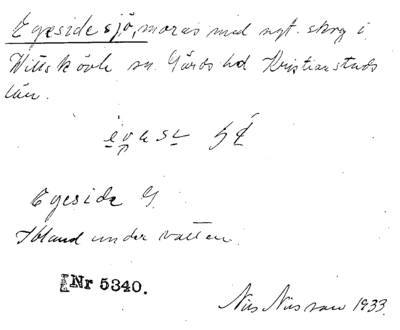 Egeside sjö, moras med ngt. skog i
Vittskövle sn. Gärds hd Kristianstads
län.
Egeside G.
Ibland under vatten.
Nr 5340.
Nils Nilsson 1933.